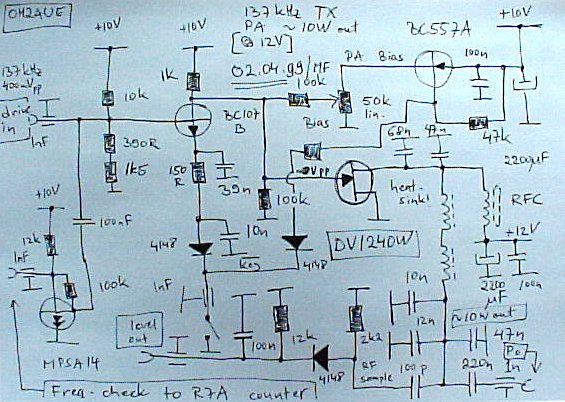 OH2AUE
137 kHz TX
PA ~10W out
[@ 12V]
02.04.99/MF
+10V
+10V
+10V
BC557A
137kHz
400mVpp
drive
in
1nF
10k
1k
100k
PA Bias
100n
50k
lin.
Bias
47k
2200µF
390R
1k5
BC107
B
150
R
39n
68n
47n
100k
heat-
sink!
RFC
DV1240W
+12V
+10V
12k
1nF
100nF
100k
4148
10n
key
4148
1nF
2200
µF
100n
10n
12n
~10W out
47n
MPSA14
level
out
100n
12k
4148
2k2
RF
sample
100p
220n
Freq.-check to R7A counter